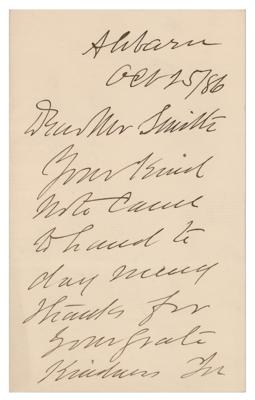 Ahbarn
Oct 25/86
Dear Mr Smith
Your Kind
Note Came
to hand to
day meny
thanks for
your grate
Kindness In